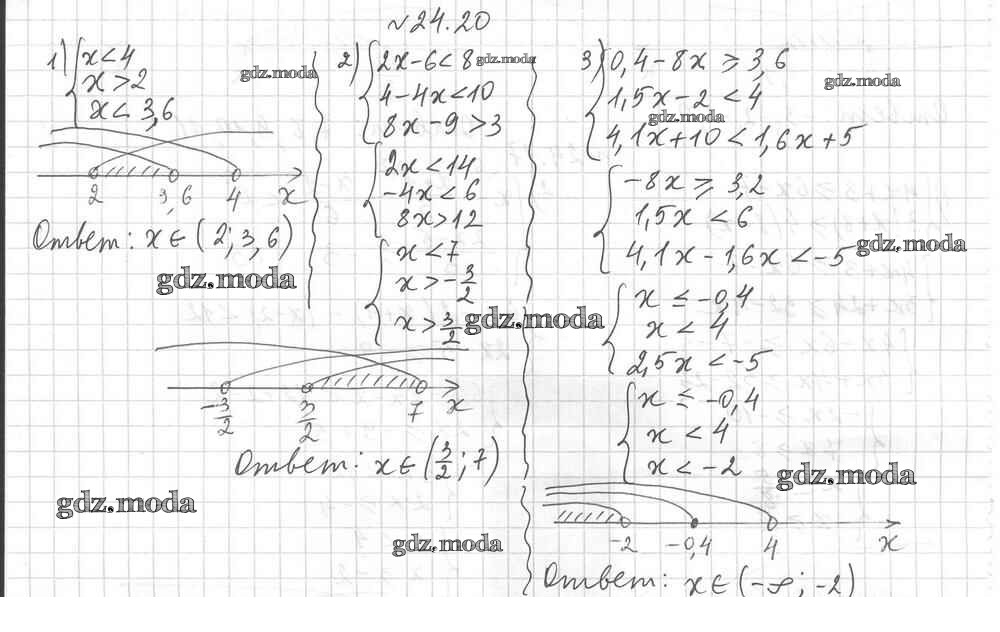 №24.20
1) { x < 4
x > 2
x < 3,6
2 3,6 4 x
Ответ: x ∈ (2; 3,6)
2) { 2x - 6 < 8
4 - 4x < 10
8x - 9 > 3
{ 2x < 14
-4x < 6
8x > 12
{ x < 7
x > -3/2
x > 3/2
-3/2 3/2 7 x
Ответ: x ∈ (3/2; 7)
3) { 0,4 - 8x ≥ 3,6
1,5x - 2 < 4
4,1x + 10 < 1,6x + 5
{ -8x ≥ 3,2
1,5x < 6
4,1x - 1,6x < -5
{ x ≤ -0,4
x < 4
2,5x < -5
{ x ≤ -0,4
x < 4
x < -2
-2 -0,4 4 x
Ответ: x ∈ (-∞; -2)
gdz.moda
gdz.moda
gdz.moda
gdz.moda
gdz.moda
gdz.moda
gdz.moda
gdz.moda
gdz.moda
gdz.moda